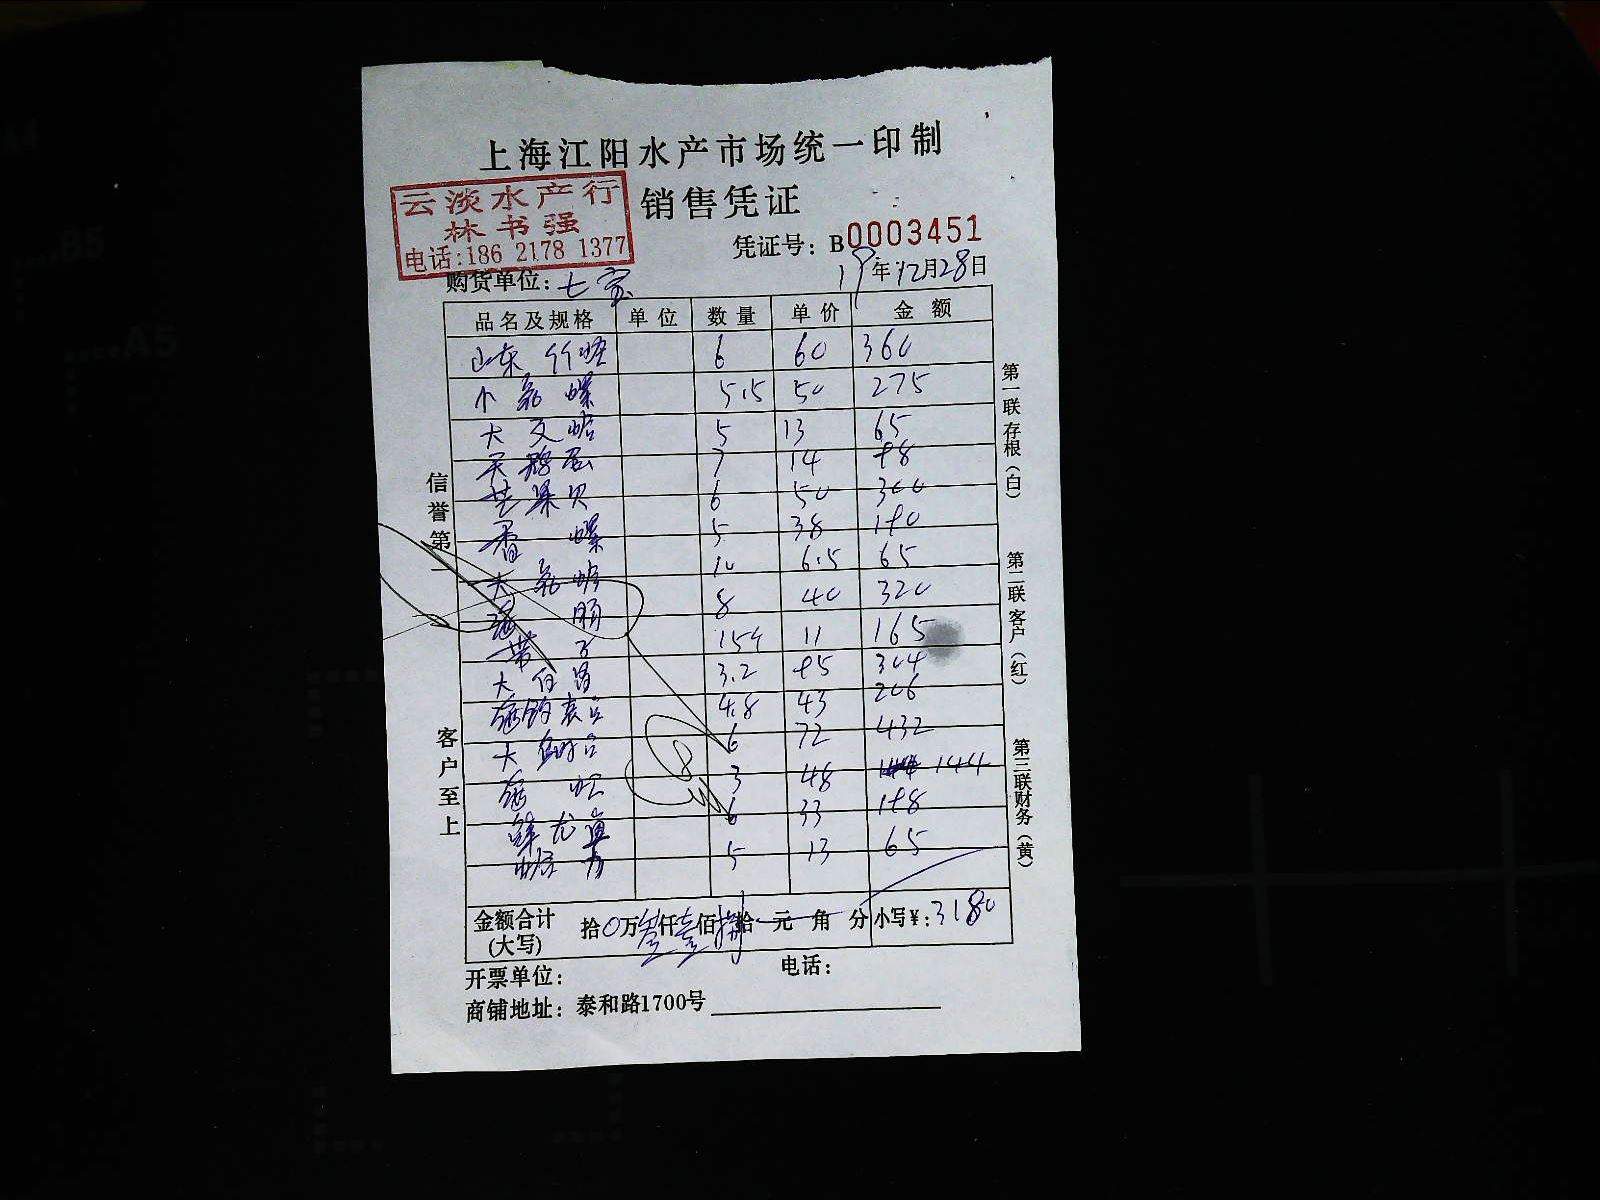 上海江阳水产市场统一印制
云淡水产行
林书强
电话:186 2178 1377
销售凭证
凭证号: B0003451
购货单位: 七家
19年12月28日
品名及规格 单位 数量 单价 金额
山东 竹蛏 6 60 360
小 螺 5.5 50 275
大 文蛤 5 13 65
天鹅蛋 7 14 98
芒果贝 6 50 300
香 螺 5 38 190
大 10 6.5 65
8 40 320
带子 15 11 165
大 3.2 95 304
4.8 43 206
大 鲍 6 72 432
3 48 144
鲜尤 6 33 198
5 13 65
金额合计
(大写)
拾0万叁仟壹佰捌拾元角分 小写¥: 3180
开票单位:
电话:
商铺地址: 泰和路1700号
信誉第一
客户至上
第一联 存根(白)
第二联 客户(红)
第三联 财务(黄)